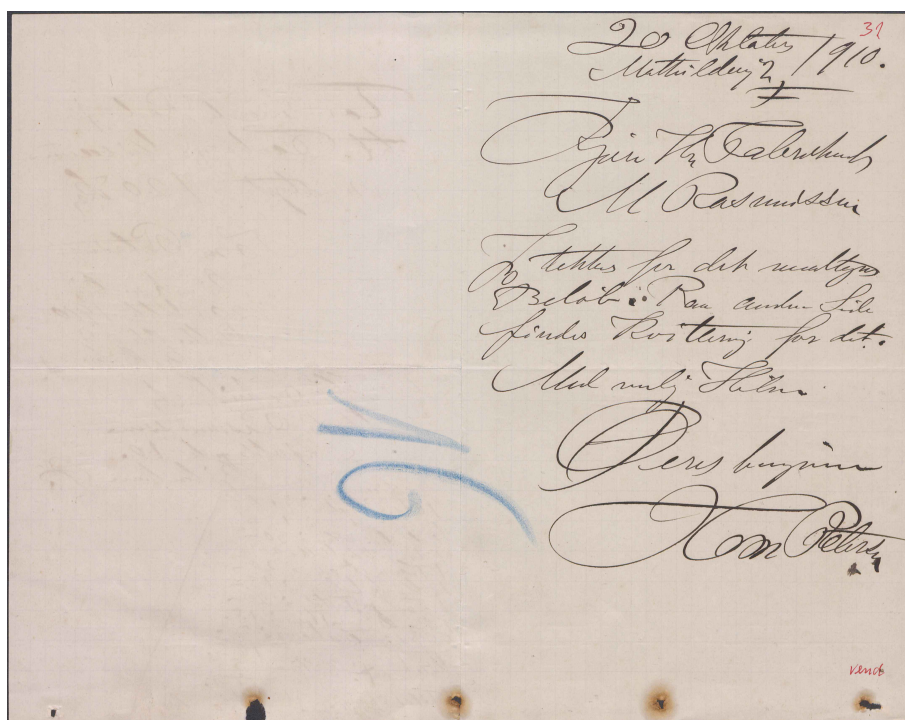 31
20 Oktober 1910.
Mathildevej 2
Kjære Hr Fabrikant
M Rasmussen
Jeg takker for det modtagne
Beløb: Paa anden Side
findes Kvittering for det.
Med venlig Hilsen
Deres
Petersen
vend